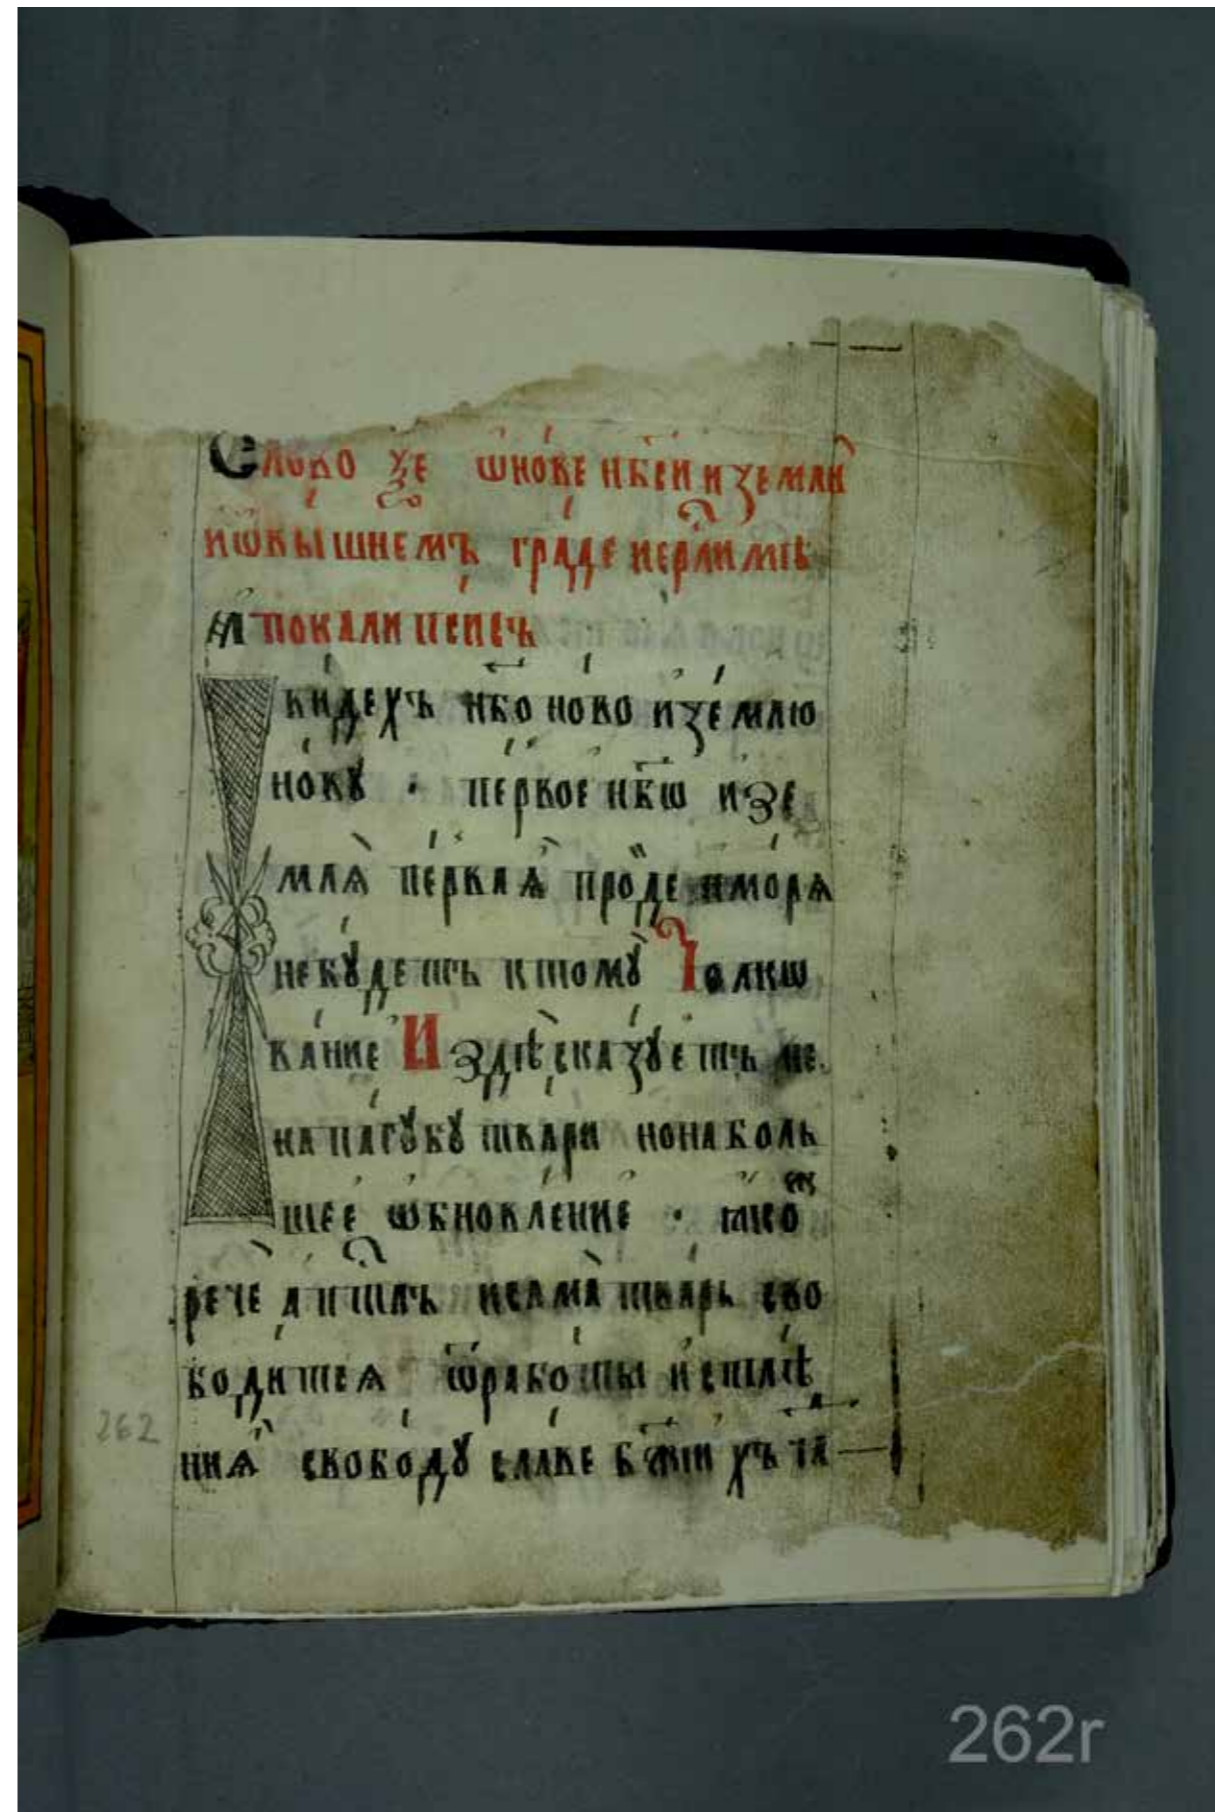 Слово ѯе ѿнове нб҃си и земли
иѡвышнемъ граде иерл҃имѣ
апокалипсисъ
И видехъ нб҃о ново и землю
нову · первое нб҃ѡ и зе
млѧ первая проиде и моря
не будетъ к тому Толкѡ
вание И здѣ сказуетъ не
на пагубу твари но на боль
шее ѡбновление · ꙗкоже
рече ап҃лъ и сама тварь сво
бодится ѿ работы истлѣ
ния свободу славе бж҃иихъ ча
262
262r